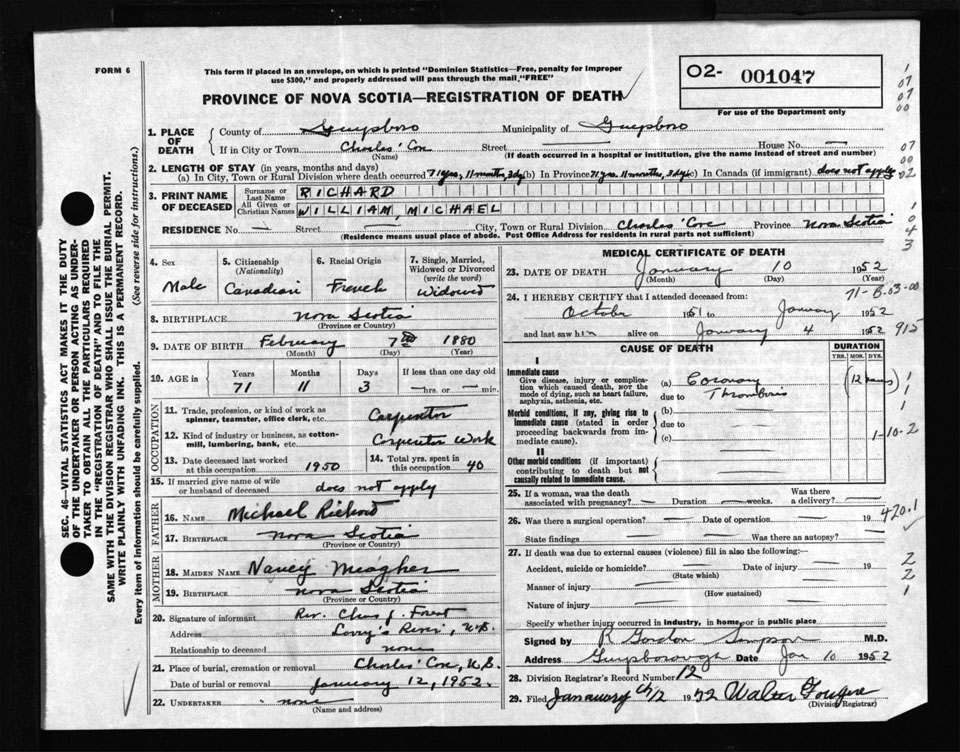 FORM 6
This form if placed in an envelope, on which is printed "Dominion Statistics—Free, penalty for improper
use $300," and properly addressed will pass through the mail "FREE"
PROVINCE OF NOVA SCOTIA—REGISTRATION OF DEATH
O2- 001047
For use of the Department only
1. PLACE OF DEATH
County of Guysboro Municipality of Guysboro
If in City or Town Charles' Cove Street — House No. —
(Name) (If death occurred in a hospital or institution, give the name instead of street and number)
2. LENGTH OF STAY (in years, months and days)
(a) In City, Town or Rural Division where death occurred 71 yrs, 11 months, 3 dys (b) In Province 71 yrs, 11 months, 3 dys (c) In Canada (if immigrant) does not apply
3. PRINT NAME OF DECEASED
Surname or Last Name RICHARD
All Given or Christian Names WILLIAM, MICHAEL
RESIDENCE No. — Street — City, Town or Rural Division Charles' Cove Province Nova Scotia
(Residence means usual place of abode. Post Office Address for residents in rural parts not sufficient)
4. Sex Male
5. Citizenship (Nationality) Canadian
6. Racial Origin French
7. Single, Married, Widowed or Divorced (write the word) Widowed
8. BIRTHPLACE Nova Scotia
(Province or Country)
9. DATE OF BIRTH February 7th 1880
(Month) (Day) (Year)
10. AGE in Years Months Days If less than one day old
71 11 3 — hrs. or — min.
OCCUPATION
11. Trade, profession, or kind of work as spinner, teamster, office clerk, etc. Carpenter
12. Kind of industry or business, as cotton-mill, lumbering, bank, etc. Carpenter Work
13. Date deceased last worked at this occupation 1950
14. Total yrs. spent in this occupation 40
15. If married give name of wife or husband of deceased does not apply
FATHER
16. NAME Michael Richard
17. BIRTHPLACE Nova Scotia
(Province or Country)
MOTHER
18. MAIDEN NAME Nancy Meagher
19. BIRTHPLACE nova Scotia
(Province or Country)
20. Signature of informant Rev. Chas J. Forest
Address Larry's River, N.S.
Relationship to deceased none
21. Place of burial, cremation or removal Charles' Cove, N.S.
Date of burial or removal January 12, 1952.
22. UNDERTAKER none
(Name and address)
MEDICAL CERTIFICATE OF DEATH
23. DATE OF DEATH January 10 1952
(Month) (Day)
24. I HEREBY CERTIFY that I attended deceased from:
October 1951 to January 1952
and last saw him alive on January 4 1952
CAUSE OF DEATH
DURATION
YRS. MOS. DYS.
I
Immediate cause
Give disease, injury or complication which caused death, not the mode of dying, such as heart failure, asphyxia, asthenia, etc.
(a) Coronary (12 hours)
due to Thrombosis
Morbid conditions, if any, giving rise to immediate cause (stated in order proceeding backwards from immediate cause).
(b)
due to
(c)
II
Other morbid conditions (if important) contributing to death but not causally related to immediate cause.
25. If a woman, was the death associated with pregnancy? — Duration — weeks. Was there a delivery? —
26. Was there a surgical operation? — Date of operation — 19
State findings — Was there an autopsy? —
27. If death was due to external causes (violence) fill in also the following:—
Accident, suicide or homicide? — Date of injury — 19
(State which)
Manner of injury —
(How sustained)
Nature of injury —
Specify whether injury occurred in industry, in home, or in public place
Signed by R Gordon Simpson M.D.
Address Guysborough Date Jan 10 1952
28. Division Registrar's Record Number 12
29. Filed January 19 52 Walter Fougere
(Division Registrar)
71-B-03-00
915
1-10-2
420.1
SEC. 46—VITAL STATISTICS ACT MAKES IT THE DUTY
OF THE UNDERTAKER OR PERSON ACTING AS UNDERTAKER TO OBTAIN ALL THE PARTICULARS REQUIRED
IN THE "REGISTRATION OF DEATH" AND TO FILE THE
SAME WITH THE DIVISION REGISTRAR WHO SHALL ISSUE THE BURIAL PERMIT.
WRITE PLAINLY WITH UNFADING INK. THIS IS A PERMANENT RECORD.
Every item of information should be carefully supplied. (See reverse side for instructions.)